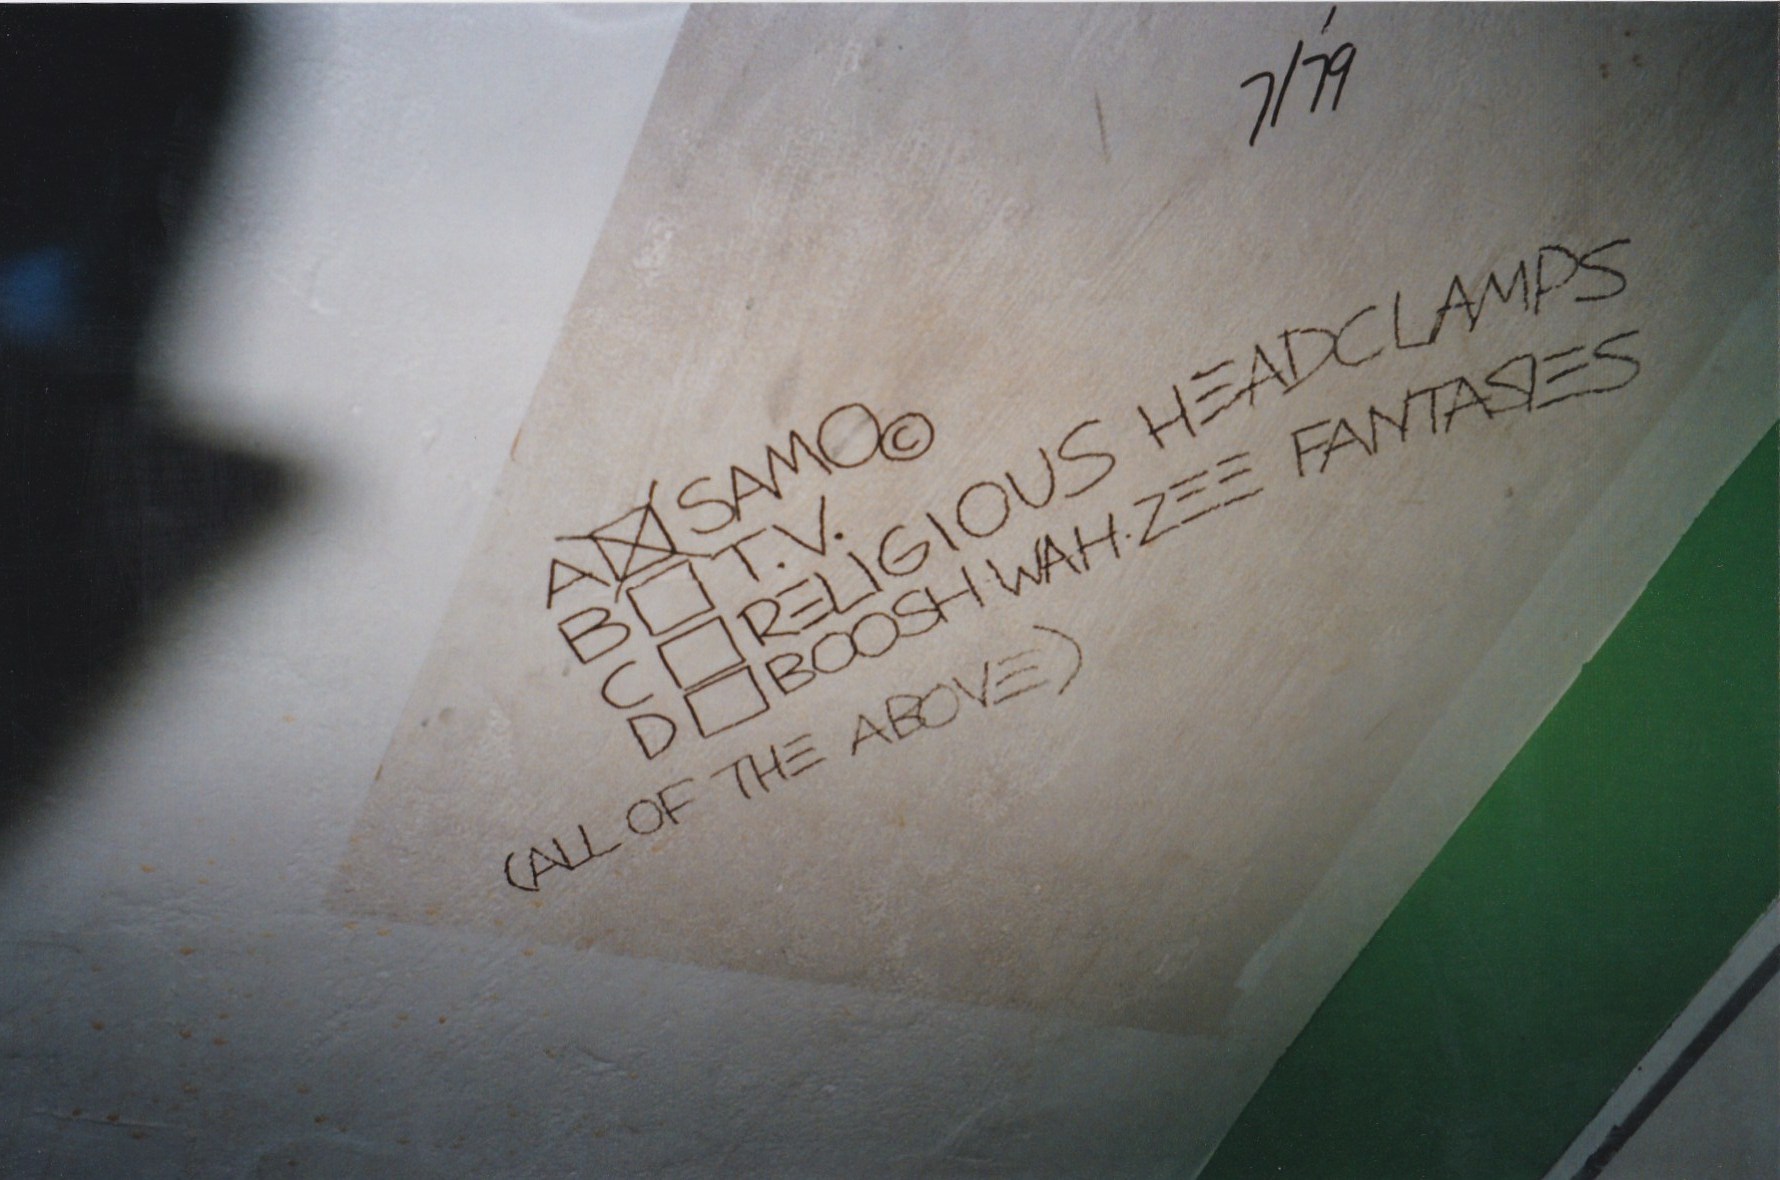 7/79
A ☒ SAMO©
B ☐ T.V.
C ☐ RELIGIOUS HEADCLAMPS
D ☐ BOOSH WAH·ZEE FANTASIES
(ALL OF THE ABOVE)